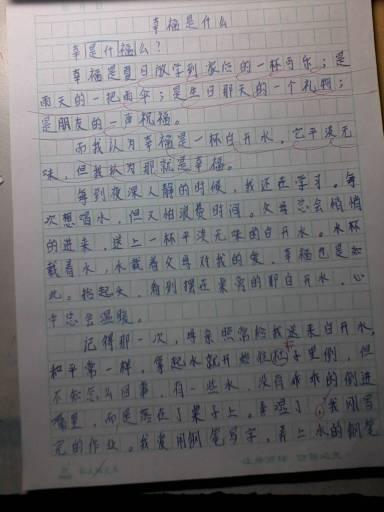 幸福是什么
幸是什福么？
幸福是夏日放学到家后的一杯可乐；是
雨天的一把雨伞；是生日那天的一个礼物；
是朋友的一声祝福。
而我认为幸福是一杯白开水，它平淡无
味，但我认为那就是幸福。
每到夜深人静的时候，我还在学习。每
次想喝水，但又怕浪费时间。父母总会悄悄
的进来，送上一杯平淡无味的白开水。水杯
载着水，水载着父母对我的爱，幸福也是如
此。抬起头，看到摆在桌旁的那白开水，心
中总会温暖。
记得那一次，母亲照常给我送来白开水，
和平常一样，拿起水就开始往肚子里倒，但
不知怎么回事，有一些水，没有乖乖的倒进
嘴里，而是落在了桌子上。弄湿了，我刚写
完的作业。我爱用钢笔写字，弄上水的钢笔